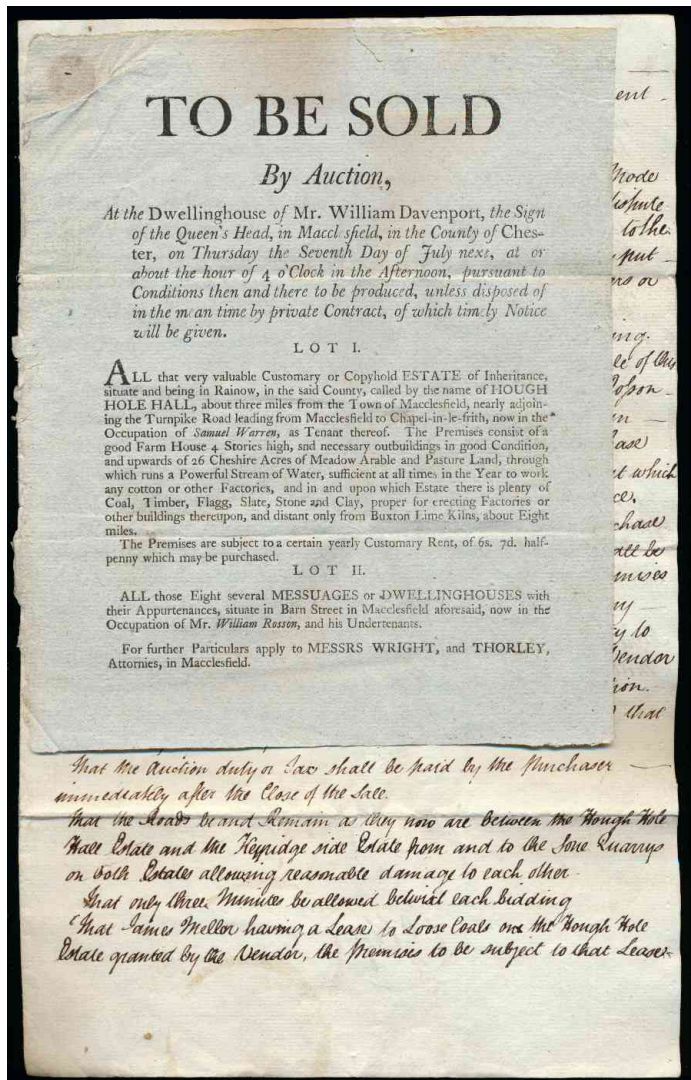 TO BE SOLD
By Auction,
At the Dwellinghouse of Mr. William Davenport, the Sign
of the Queen's Head, in Maccl sfield, in the County of Ches-
ter, on Thursday the Seventh Day of July next, at or
about the hour of 4 o'Clock in the Afternoon, pursuant to
Conditions then and there to be produced, unless disposed of
in the mean time by private Contract, of which timely Notice
will be given.
LOT I.
ALL that very valuable Customary or Copyhold ESTATE of Inheritance,
situate and being in Rainow, in the said County, called by the name of HOUGH
HOLE HALL, about three miles from the Town of Macclesfield, nearly adjoin-
ing the Turnpike Road leading from Macclesfield to Chapel-in-le-frith, now in the
Occupation of Samuel Warren, as Tenant thereof. The Premises consist of a
good Farm House 4 Stories high, snd necessary outbuildings in good Condition,
and upwards of 26 Cheshire Acres of Meadow Arable and Pasture Land, through
which runs a Powerful Stream of Water, sufficient at all times in the Year to work
any cotton or other Factories, and in and upon which Estate there is plenty of
Coal, Timber, Flagg, Slate, Stone and Clay, proper for erecting Factories or
other buildings thereupon, and distant only from Buxton Lime Kilns, about Eight
miles.
The Premises are subject to a certain yearly Customary Rent, of 6s. 7d. half-
penny which may be purchased.
LOT II.
ALL those Eight several MESSUAGES or DWELLINGHOUSES with
their Appurtenances, situate in Barn Street in Macclesfield aforesaid, now in the
Occupation of Mr. William Rosson, and his Undertenants.
For further Particulars apply to MESSRS WRIGHT, and THORLEY,
Attornies, in Macclesfield.
ent
Mode
dispute
to the
put
ers or
ing.
le of this
upon
m
ase
t which
ce.
chase
all be
mises
ny
ty to
Vendor
tion.
that
That the Auction duty or Tax shall be paid by the Purchaser
immediately after the Close of the Sale.
That the Roads be and Remain as they now are between the Hough Hole
Hall Estate and the Kerridge side Estate from and to the Stone Quarrys
on both Estates allowing reasonable damage to each other.
That only three Minutes be allowed betwixt each bidding
That James Mellor having a Lease to Loose Coals on the Hough Hole
Estate granted by the Vendor, the Premises to be subject to that Lease